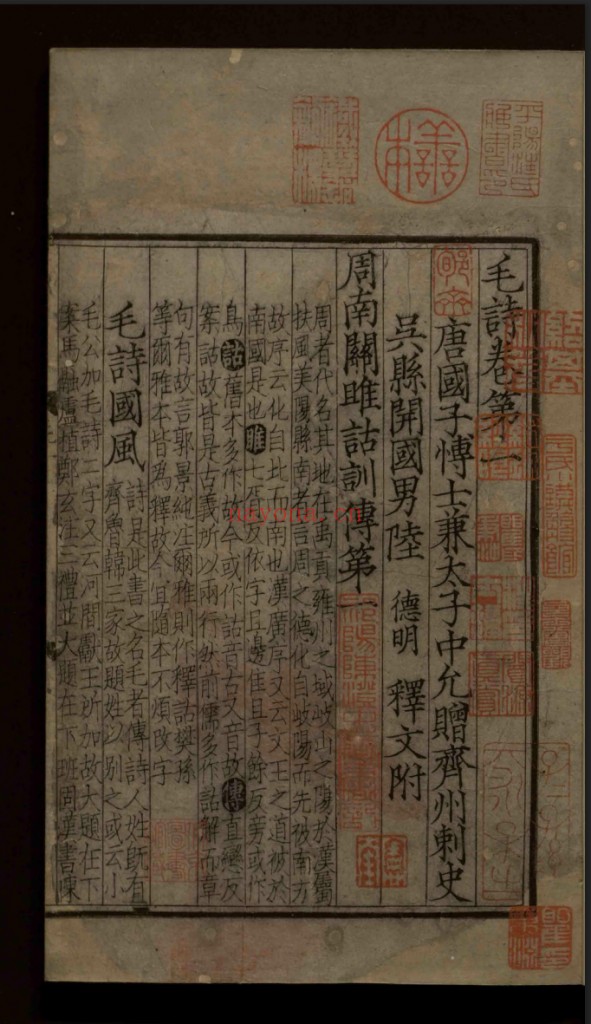 毛詩卷第一
唐國子愽士兼太子中允贈齊州刺史
吳縣開國男陸 德明 釋文附
周南關雎詁訓傳第一
周者代名其地在禹貢雍州之域岐山之陽於漢屬
扶風美陽縣南者言周之德化自岐陽而先被南方
故序云化自北而南也漢廣序又云文王之道被於
南國是也雎七胥反依字且邊隹且子餘反旁或作
鳥詁舊本多作故今或作詁音古又音故傳直戀反
案詁故皆是古義所以兩行然前儒多作詁解而章
句有故言郭景純注爾雅則作釋詁樊孫
等爾雅本皆為釋故今宜隨本不煩改字
毛詩國風 詩是此書之名毛者傳詩人姓既有
齊魯韓三家故題姓以別之或云小
毛公加毛詩二字又云河間獻王所加故大題在下
案馬融盧植鄭玄注三禮並大題在下班固漢書陳
善本
nayona.cn